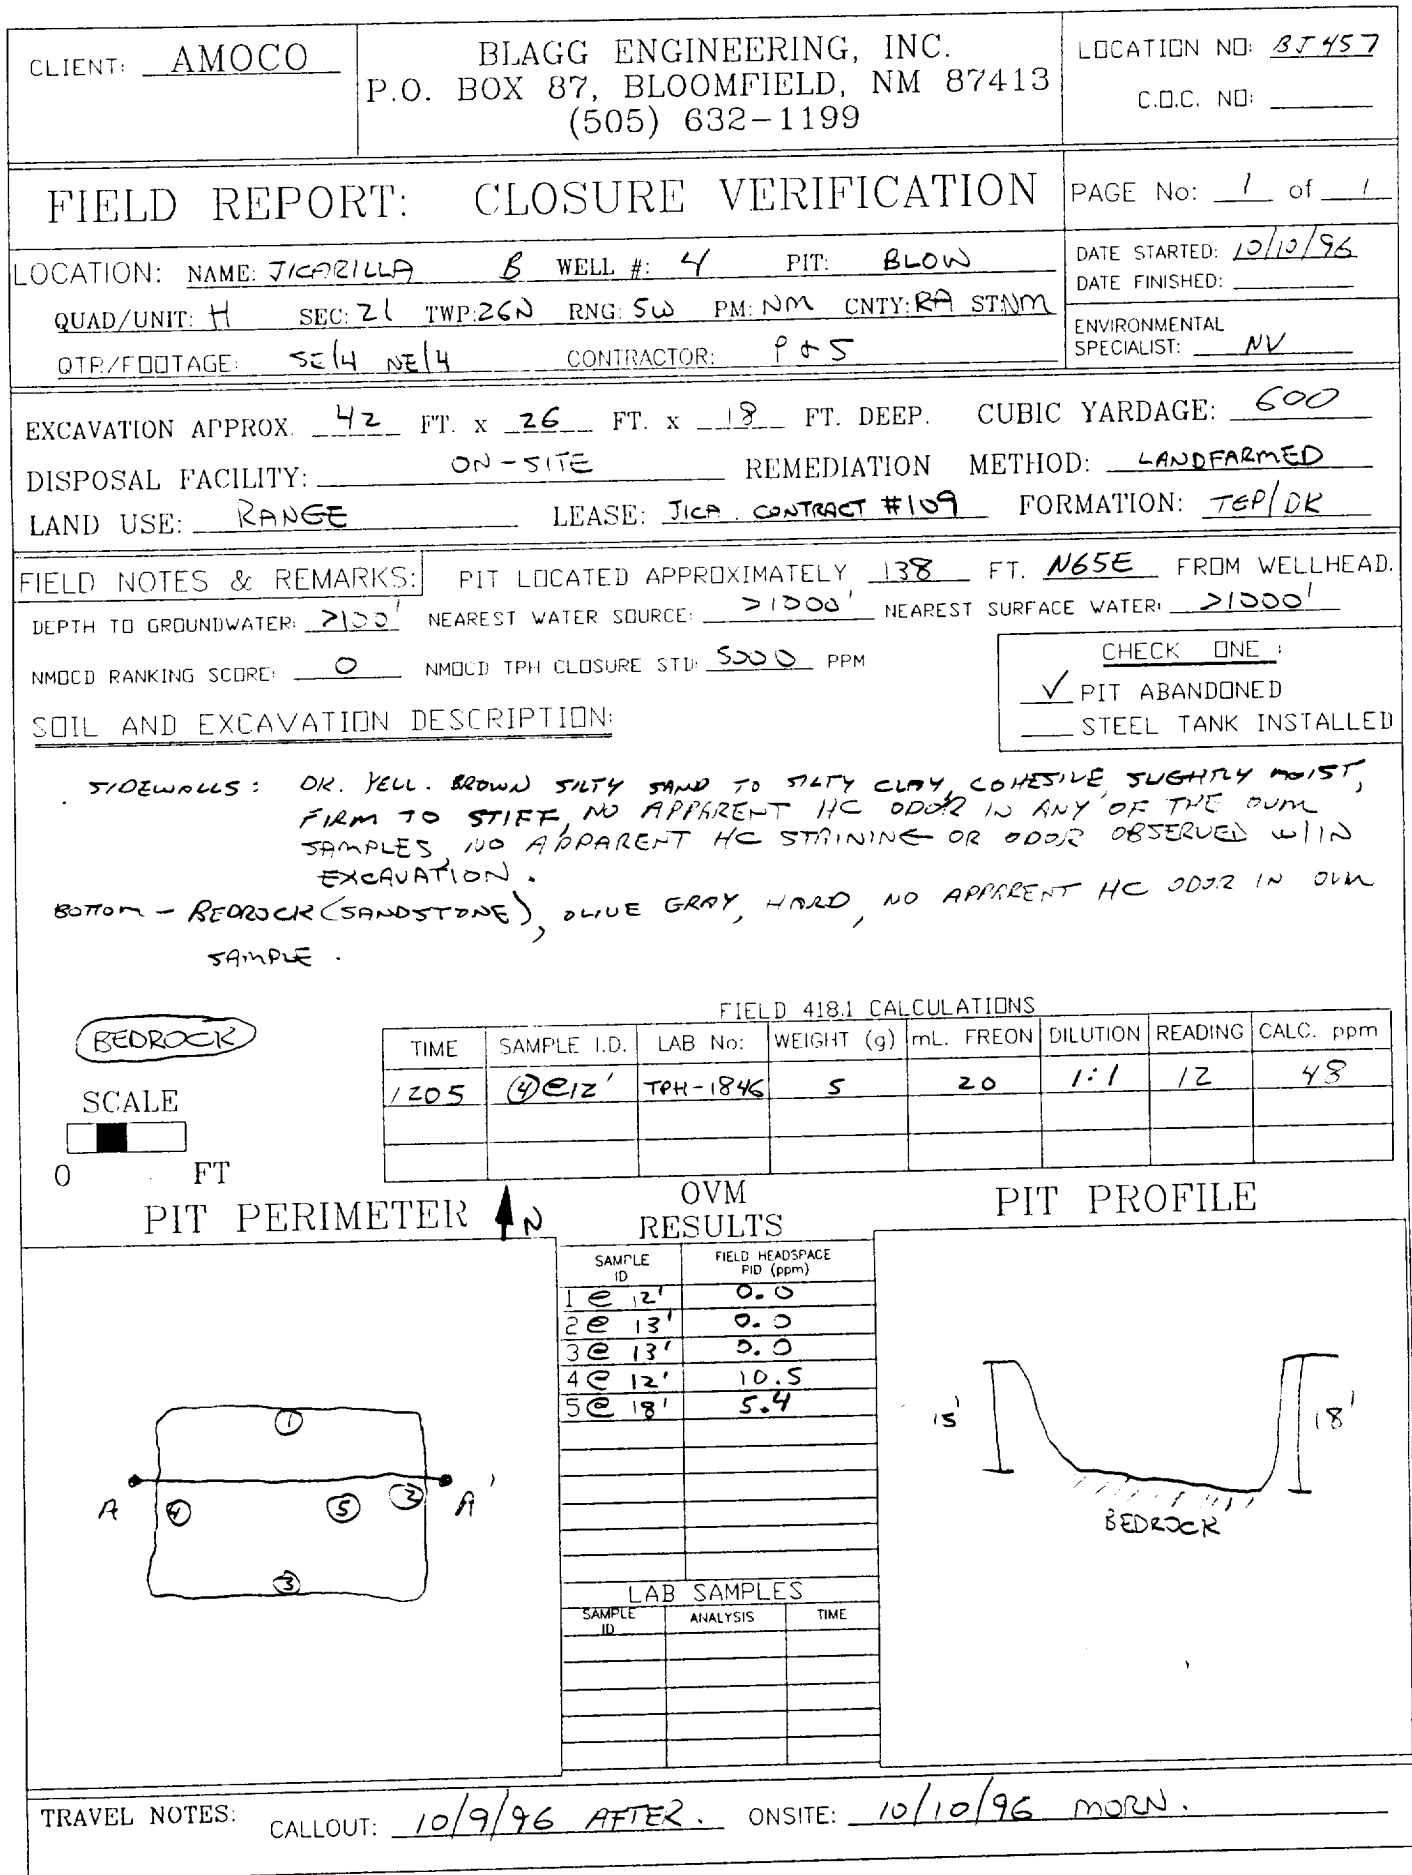 CLIENT: AMOCO
BLAGG ENGINEERING, INC.
P.O. BOX 87, BLOOMFIELD, NM 87413
(505) 632-1199
LOCATION NO: BJ457
C.O.C. NO:
FIELD REPORT: CLOSURE VERIFICATION
PAGE No: 1 of 1
LOCATION: NAME: JICARILLA B WELL #: 4 PIT: BLOW
QUAD/UNIT: H SEC: 21 TWP: 26N RNG: 5W PM: NM CNTY: RA ST: NM
QTR/FOOTAGE: SE/4 NE/4 CONTRACTOR: P & S
DATE STARTED: 10/10/96
DATE FINISHED:
ENVIRONMENTAL
SPECIALIST: NV
EXCAVATION APPROX. 42 FT. x 26 FT. x 18 FT. DEEP. CUBIC YARDAGE: 600
DISPOSAL FACILITY: ON-SITE REMEDIATION METHOD: LANDFARMED
LAND USE: RANGE LEASE: JICA. CONTRACT #109 FORMATION: TEP/DK
FIELD NOTES & REMARKS: PIT LOCATED APPROXIMATELY 138 FT. N65E FROM WELLHEAD.
DEPTH TO GROUNDWATER: >100' NEAREST WATER SOURCE: >1000' NEAREST SURFACE WATER: >1000'
NMOCD RANKING SCORE: 0 NMOCD TPH CLOSURE STD: 5000 PPM
CHECK ONE :
✓ PIT ABANDONED
STEEL TANK INSTALLED
SOIL AND EXCAVATION DESCRIPTION:
SIDEWALLS: DK. YELL. BROWN SILTY SAND TO SILTY CLAY, COHESIVE, SLIGHTLY MOIST,
FIRM TO STIFF, NO APPARENT HC ODOR IN ANY OF THE OVM
SAMPLES, NO APPARENT HC STAINING OR ODOR OBSERVED W/IN
EXCAVATION.
BOTTOM - BEDROCK (SANDSTONE), OLIVE GRAY, HARD, NO APPARENT HC ODOR IN OVM
SAMPLE.
BEDROCK
FIELD 418.1 CALCULATIONS
TIME SAMPLE I.D. LAB No: WEIGHT (g) mL. FREON DILUTION READING CALC. ppm
1205 ④@12' TPH-1846 5 20 1:1 12 48
SCALE
0 FT
PIT PERIMETER N
OVM
RESULTS
PIT PROFILE
SAMPLE
ID
FIELD HEADSPACE
PID (ppm)
1 @ 12' 0.0
2 @ 13' 0.0
3 @ 13' 0.0
4 @ 12' 10.5
5 @ 18' 5.4
1
A 4 5 2 A'
3
15' 18'
BEDROCK
LAB SAMPLES
SAMPLE
ID
ANALYSIS TIME
TRAVEL NOTES: CALLOUT: 10/9/96 AFTER. ONSITE: 10/10/96 MORN.